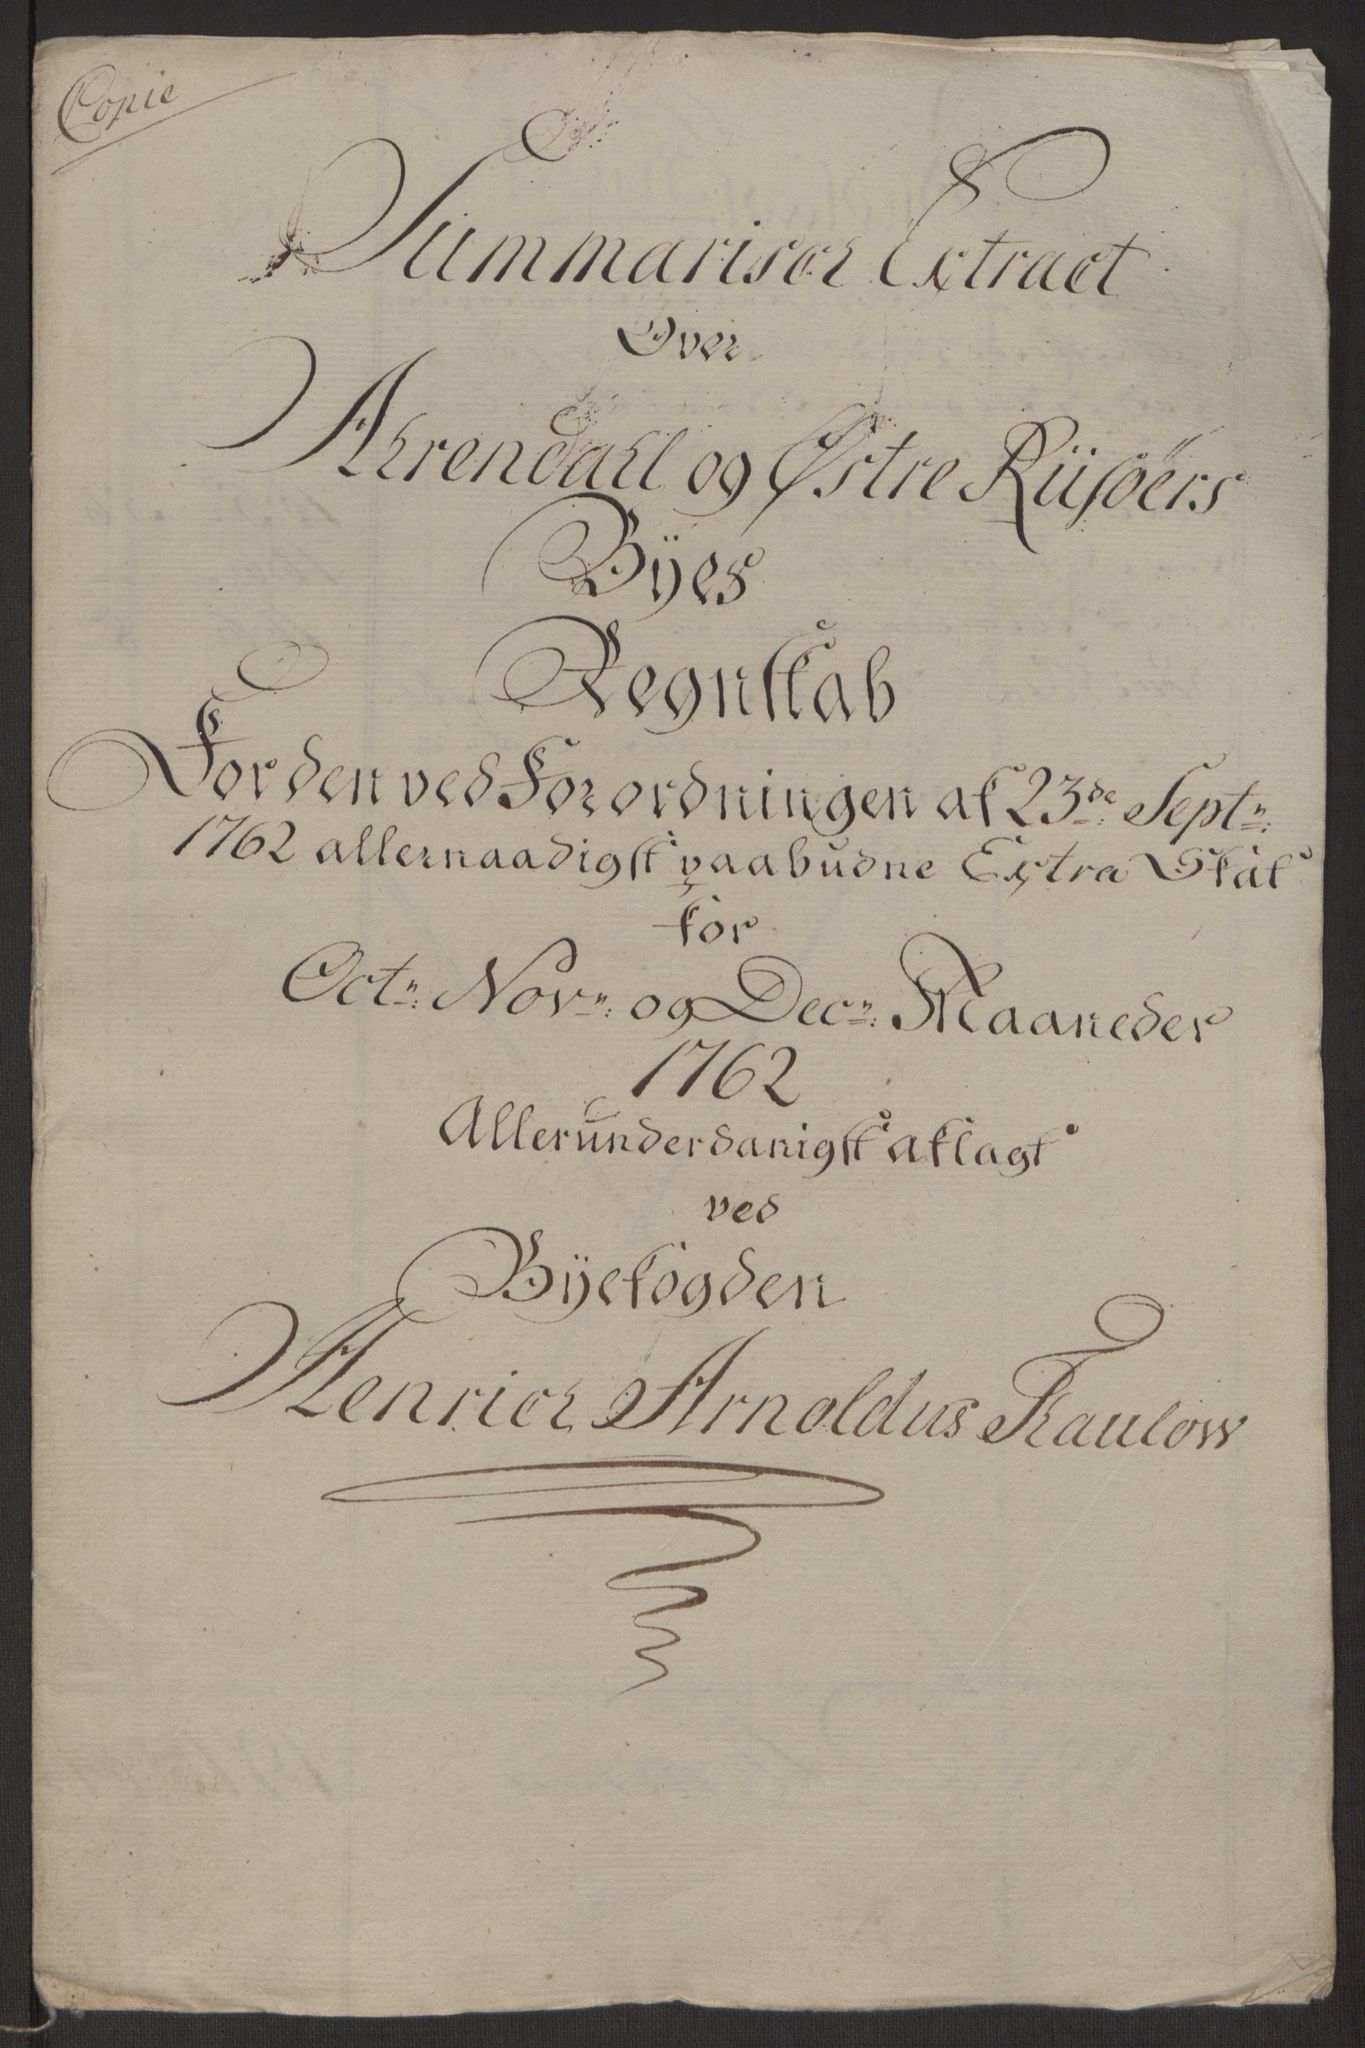 Copie
Summarisch Extract
Over
Ahrendahl og Østre Riisöers
Byes
Regnskab
For den ved Forordningen af 23de Septr:
1762 allernaadigst paabudne Extra Skat
for
Octr: Novr: og Decr: Maaneder
1762
Allerunderdanigst aflagt
ved
Byefogden
Henrich Arnoldus Thaulow